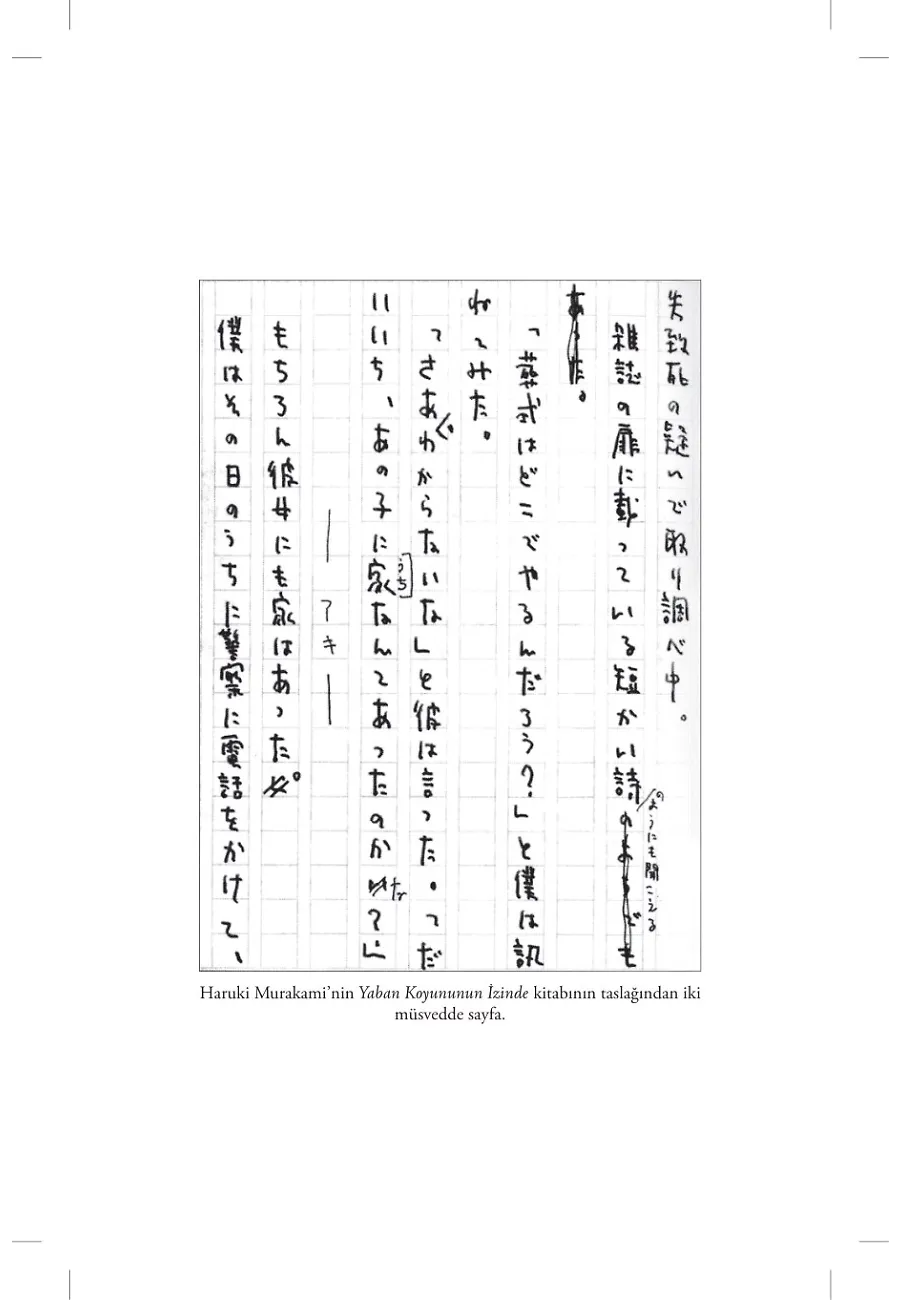 失致死の疑いで取り調べ中。
雑誌の扉に載っている短かい詩のようでも
のようにも聞こえる
あった。
「葬式はどこでやるんだろう?」と僕は訊
ねてみた。
「さあわからないな」と彼は言った。「だ
うち
いいち、あの子に家なんてあったのかな?」
— アキ —
もちろん彼女にも家はあった。
僕はその日のうちに警察に電話をかけて、
Haruki Murakami’nin Yaban Koyununun İzinde kitabının taslağından iki
müsvedde sayfa.